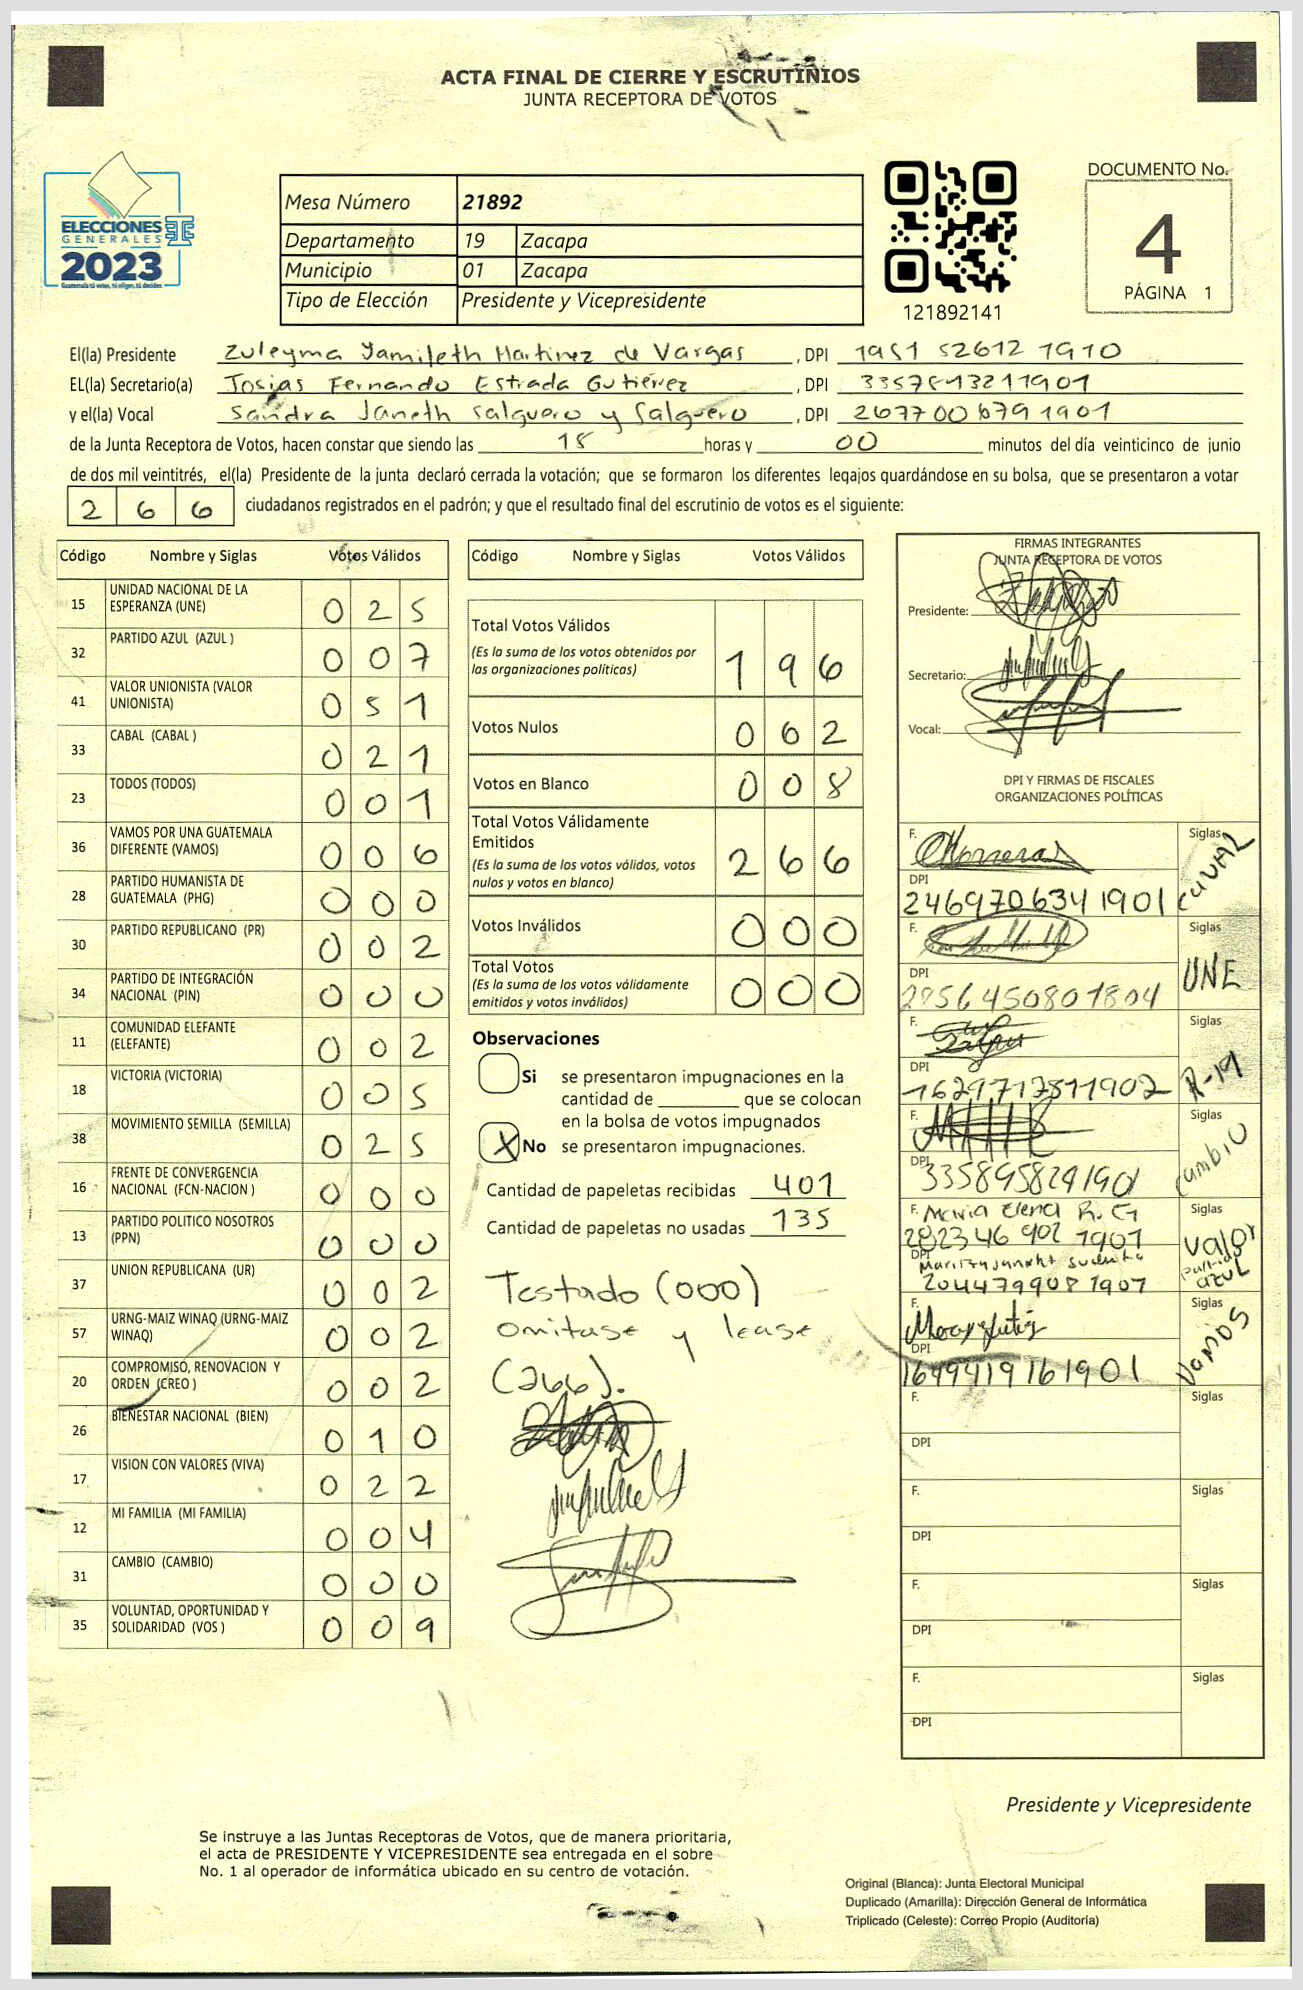 ACTA FINAL DE CIERRE Y ESCRUTINIOS
JUNTA RECEPTORA DE VOTOS
ELECCIONES
GENERALES
2023
Guatemala tú votas, tú eliges, tú decides
Mesa Número 21892
Departamento 19 Zacapa
Municipio 01 Zacapa
Tipo de Elección Presidente y Vicepresidente
121892141
DOCUMENTO No.
4
PÁGINA 1
El(la) Presidente Zuleyma Yamileth Martinez de Vargas, DPI 1951 52612 1910
EL(la) Secretario(a) Josias Fernando Estrada Gutiérez, DPI 3357813211901
y el(la) Vocal Sandra Janeth Salguero y Salguero, DPI 267700679 1901
de la Junta Receptora de Votos, hacen constar que siendo las 18 horas y 00 minutos del día veinticinco de junio
de dos mil veintitrés, el(la) Presidente de la junta declaró cerrada la votación; que se formaron los diferentes legajos quardándose en su bolsa, que se presentaron a votar
266 ciudadanos registrados en el padrón; y que el resultado final del escrutinio de votos es el siguiente:
Código Nombre y Siglas Votos Válidos
15 UNIDAD NACIONAL DE LA ESPERANZA (UNE) 025
32 PARTIDO AZUL (AZUL ) 007
41 VALOR UNIONISTA (VALOR UNIONISTA) 051
33 CABAL (CABAL ) 021
23 TODOS (TODOS) 001
36 VAMOS POR UNA GUATEMALA DIFERENTE (VAMOS) 006
28 PARTIDO HUMANISTA DE GUATEMALA (PHG) 000
30 PARTIDO REPUBLICANO (PR) 002
34 PARTIDO DE INTEGRACIÓN NACIONAL (PIN) 000
11 COMUNIDAD ELEFANTE (ELEFANTE) 002
18 VICTORIA (VICTORIA) 005
38 MOVIMIENTO SEMILLA (SEMILLA) 025
16 FRENTE DE CONVERGENCIA NACIONAL (FCN-NACION ) 000
13 PARTIDO POLITICO NOSOTROS (PPN) 000
37 UNION REPUBLICANA (UR) 002
57 URNG-MAIZ WINAQ (URNG-MAIZ WINAQ) 002
20 COMPROMISO, RENOVACION Y ORDEN (CREO ) 002
26 BIENESTAR NACIONAL (BIEN) 010
17 VISION CON VALORES (VIVA) 022
12 MI FAMILIA (MI FAMILIA) 004
31 CAMBIO (CAMBIO) 000
35 VOLUNTAD, OPORTUNIDAD Y SOLIDARIDAD (VOS ) 009
Código Nombre y Siglas Votos Válidos
Total Votos Válidos 196
(Es la suma de los votos obtenidos por
las organizaciones políticas)
Votos Nulos 062
Votos en Blanco 008
Total Votos Válidamente
Emitidos 266
(Es la suma de los votos válidos, votos
nulos y votos en blanco)
Votos Inválidos 000
Total Votos 000
(Es la suma de los votos válidamente
emitidos y votos inválidos)
Observaciones
Si se presentaron impugnaciones en la
cantidad de ________ que se colocan
en la bolsa de votos impugnados
X No se presentaron impugnaciones.
Cantidad de papeletas recibidas 401
Cantidad de papeletas no usadas 135
Testado (000)
omitase y lease
(266).
FIRMAS INTEGRANTES
JUNTA RECEPTORA DE VOTOS
Presidente:
Secretario:
Vocal:
DPI Y FIRMAS DE FISCALES
ORGANIZACIONES POLÍTICAS
F. Siglas
DPI
246970634 1901
F. Siglas UNE
DPI
2956450801804
F. Siglas R-19
DPI
1629717811902
F. Siglas Cambio
DPI
3358958291901
F. Maria Elena R. G Siglas
202346 902 1901 Valor
DPI Partido
204479908 1907 azul
F. Siglas VAMOS
DPI
1649419161901
F. Siglas
DPI
F. Siglas
DPI
F. Siglas
DPI
F. Siglas
DPI
Presidente y Vicepresidente
Se instruye a las Juntas Receptoras de Votos, que de manera prioritaria,
el acta de PRESIDENTE Y VICEPRESIDENTE sea entregada en el sobre
No. 1 al operador de informática ubicado en su centro de votación.
Original (Blanca): Junta Electoral Municipal
Duplicado (Amarilla): Dirección General de Informática
Triplicado (Celeste): Correo Propio (Auditoría)